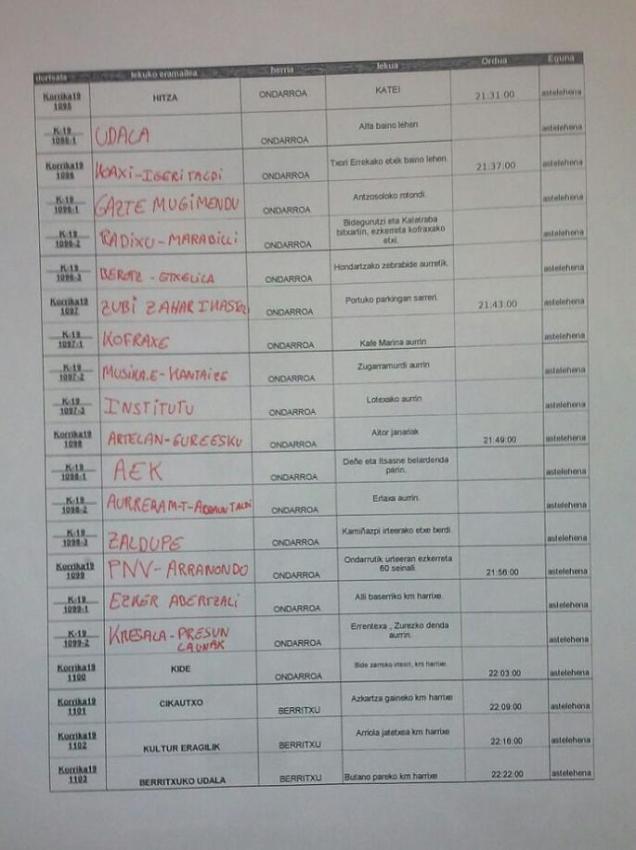 dortsala lekuko eramailea herria lekua Ordua Eguna
Korrika19 1095 HITZA ONDARROA KATEI 21:31:00 astelehena
K-19 UDALA ONDARROA Alta baino lehen astelehena
Korrika19 ONDARROA Txori Errekako etxik baino lehen. 21:37:00 astelehena
K-19 GAZTE MUGIMENDU ONDARROA Antzosoloko rotondi. astelehena
K-19 RADIXU-MARABILLI ONDARROA Bidegurutzi eta Kalatraba
bitxartin, ezkerreta kofraxako
etxi. astelehena
K-19 BEROTZ - ETXELILA ONDARROA Hondartzako zebrabide aurretik. astelehena
Korrika19 1097 ZUBI ZAHAR ONDARROA Portuko parkingan sarreri. 21:43:00 astelehena
K-19 1097-1 KOFRAXE ONDARROA Kafe Marina aurrin astelehena
K-19 1097-2 MUSIKA.E- ONDARROA Zugarramurdi aurrin astelehena
K-19 1097-3 INSTITUTU ONDARROA Lotexako aurrin astelehena
Korrika19 1098 ARTELAN-GUREESKU ONDARROA Aitor janariak 21:49:00 astelehena
K-19 1098-1 AEK ONDARROA Deñe eta Itsasne belardenda
parin. astelehena
K-19 1098-2 AURRERAM-T- ONDARROA Ertaxa aurrin. astelehena
K-19 1098-3 ZALDUPE ONDARROA Kamiñazpi irteerako etxe berdi. astelehena
Korrika19 1099 PNV-ARRANONDO ONDARROA Ondarrutik urteeran ezkerreta
60 seinali. 21:56:00 astelehena
K-19 1099-1 EZKER ABERTZALI ONDARROA Alli baserriko km harrixe. astelehena
K-19 1099-2 KRESALA-PRESUN
LAUNAK ONDARROA Errentexa , Zurezko denda
aurrin. astelehena
Korrika19 1100 KIDE ONDARROA Bide zarreko irteeri, km harrixe. 22:03:00 astelehena
Korrika19 1101 CIKAUTXO BERRITXU Azkartza gaineko km harrixe 22:09:00 astelehena
Korrika19 1102 KULTUR ERAGILIK BERRITXU Arriola jatetxea km harrixe 22:16:00 astelehena
Korrika19 1103 BERRITXUKO UDALA BERRITXU Butano pareko km harrixe 22:22:00 astelehena